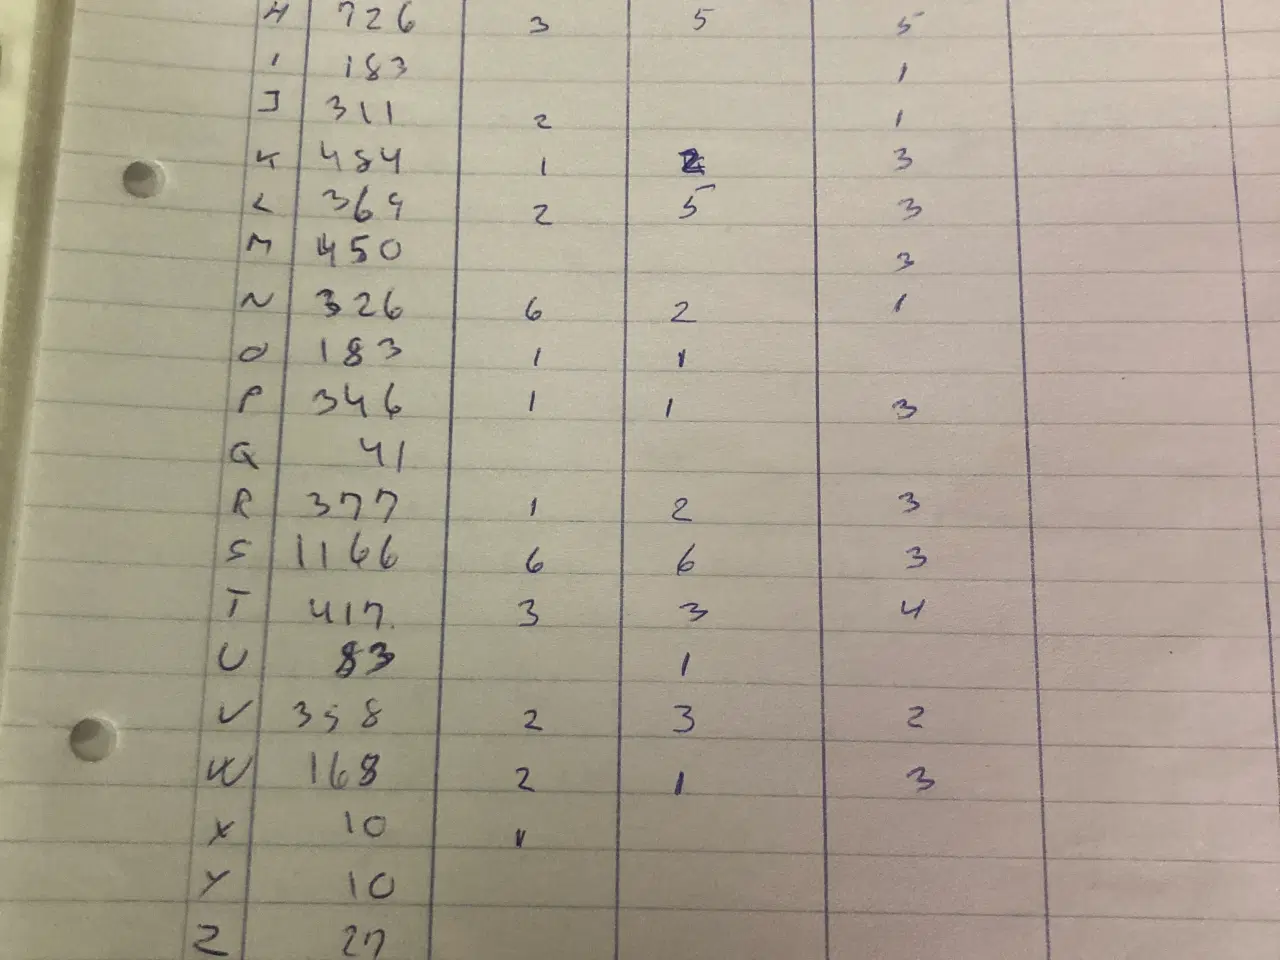 H 726 3 5 5
I 183 1
J 311 2 1
K 484 1 2 3
L 369 2 5 3
M 450 3
N 326 6 2 1
O 183 1 1
P 346 1 1 3
Q 41
R 377 1 2 3
S 1166 6 6 3
T 417. 3 3 4
U 83 1
V 358 2 3 2
W 168 2 1 3
X 10 1
Y 10
Z 27